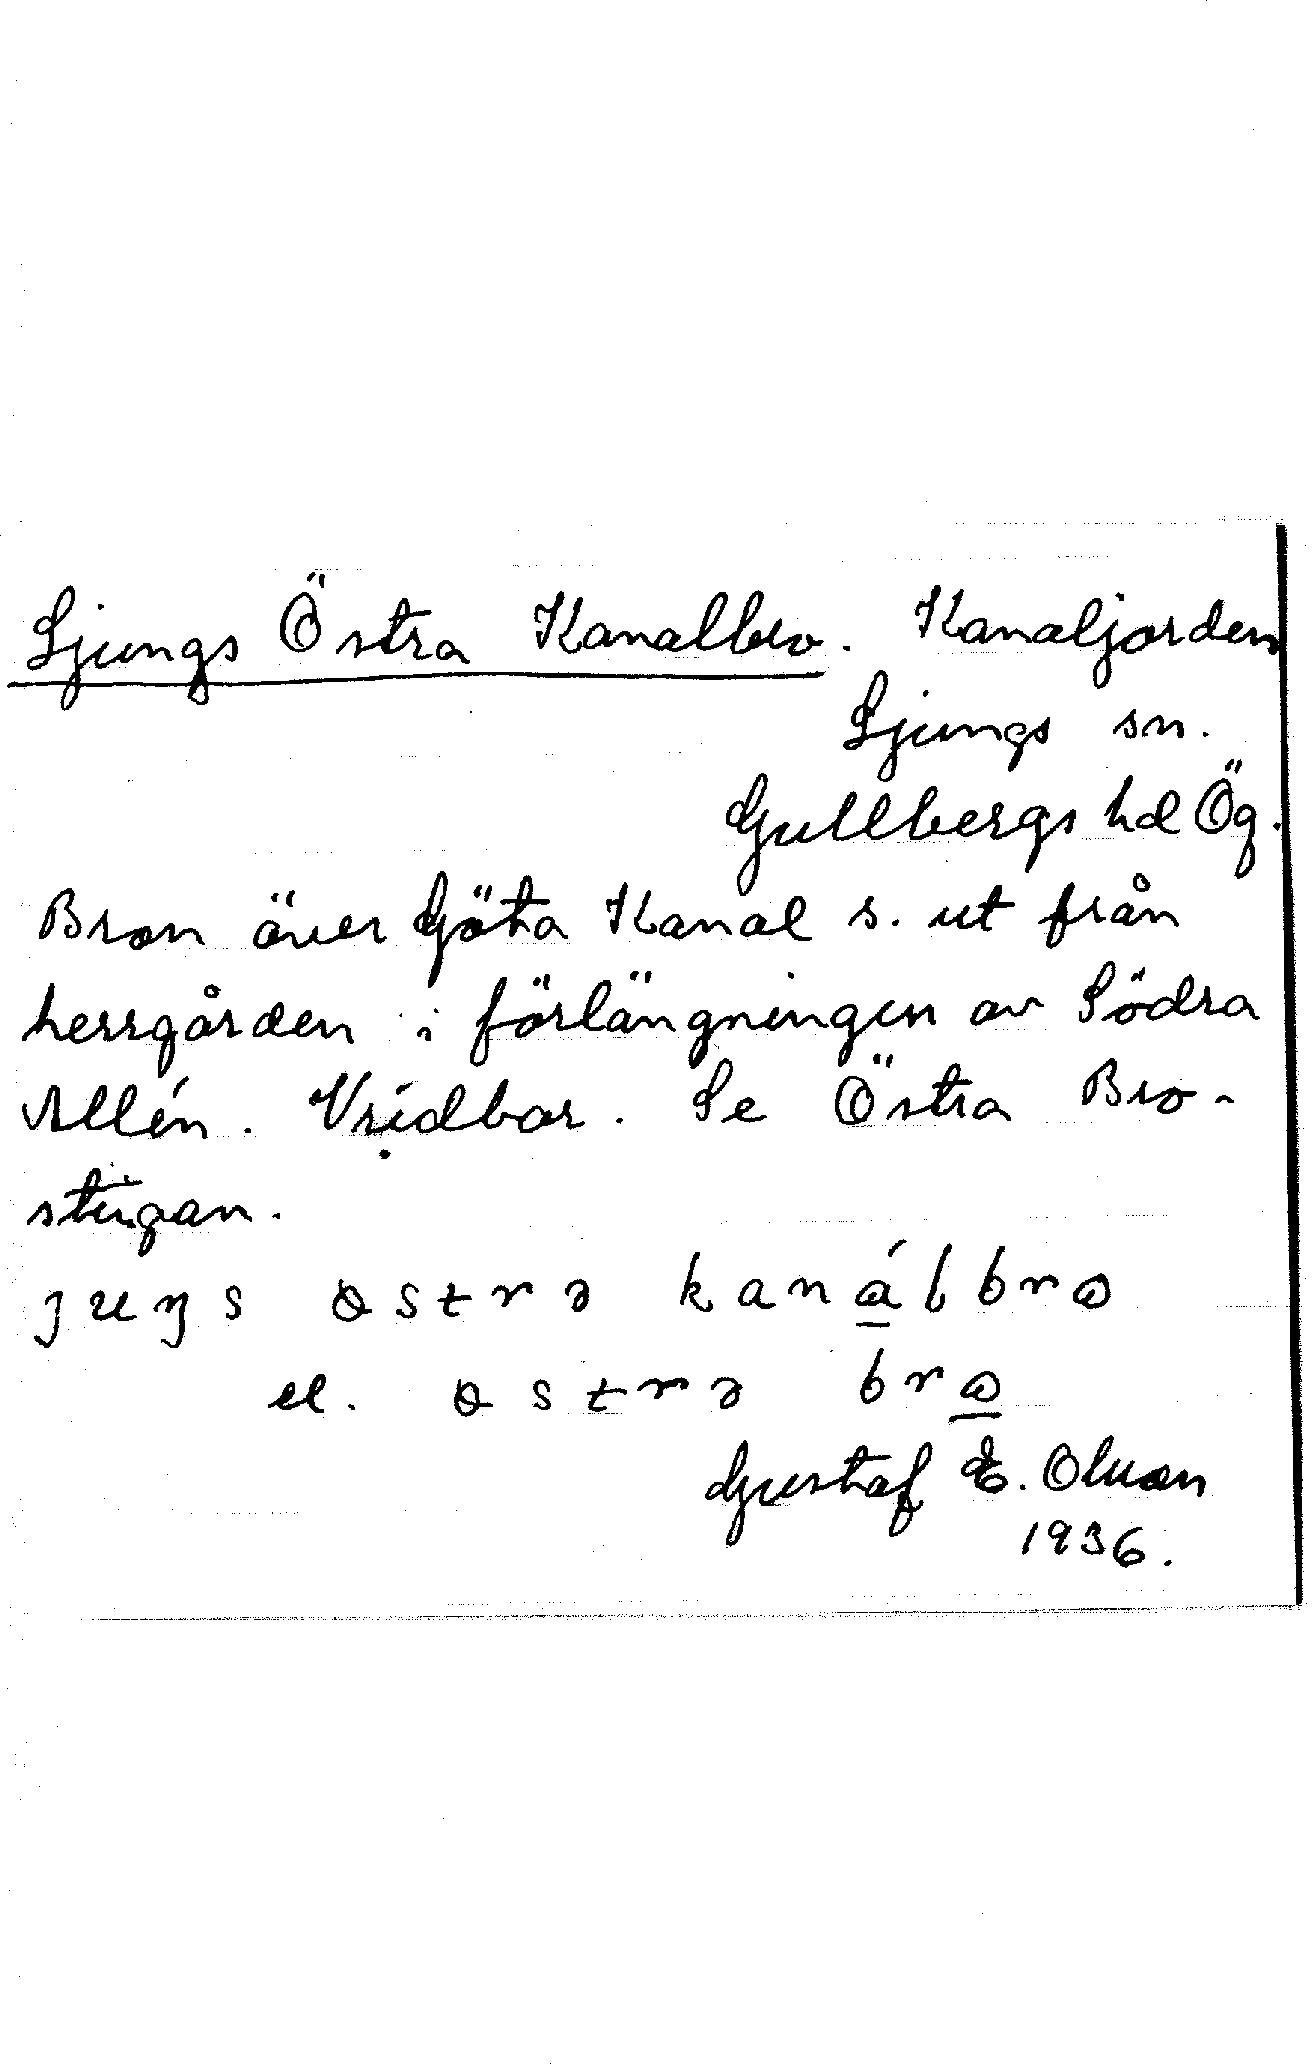 Ljungs Östra Kanalbro. Kanaljorden
Ljungs sn.
Gullbergs hd Ög.
Bron över Göta Kanal s. ut från
herrgården i förlängningen av Södra
Allén. Vridbar. Se Östra Bro-
stugan.
juŋs østrə kanálbro
el. østrə bro
Gustaf E. Olsson
1936.